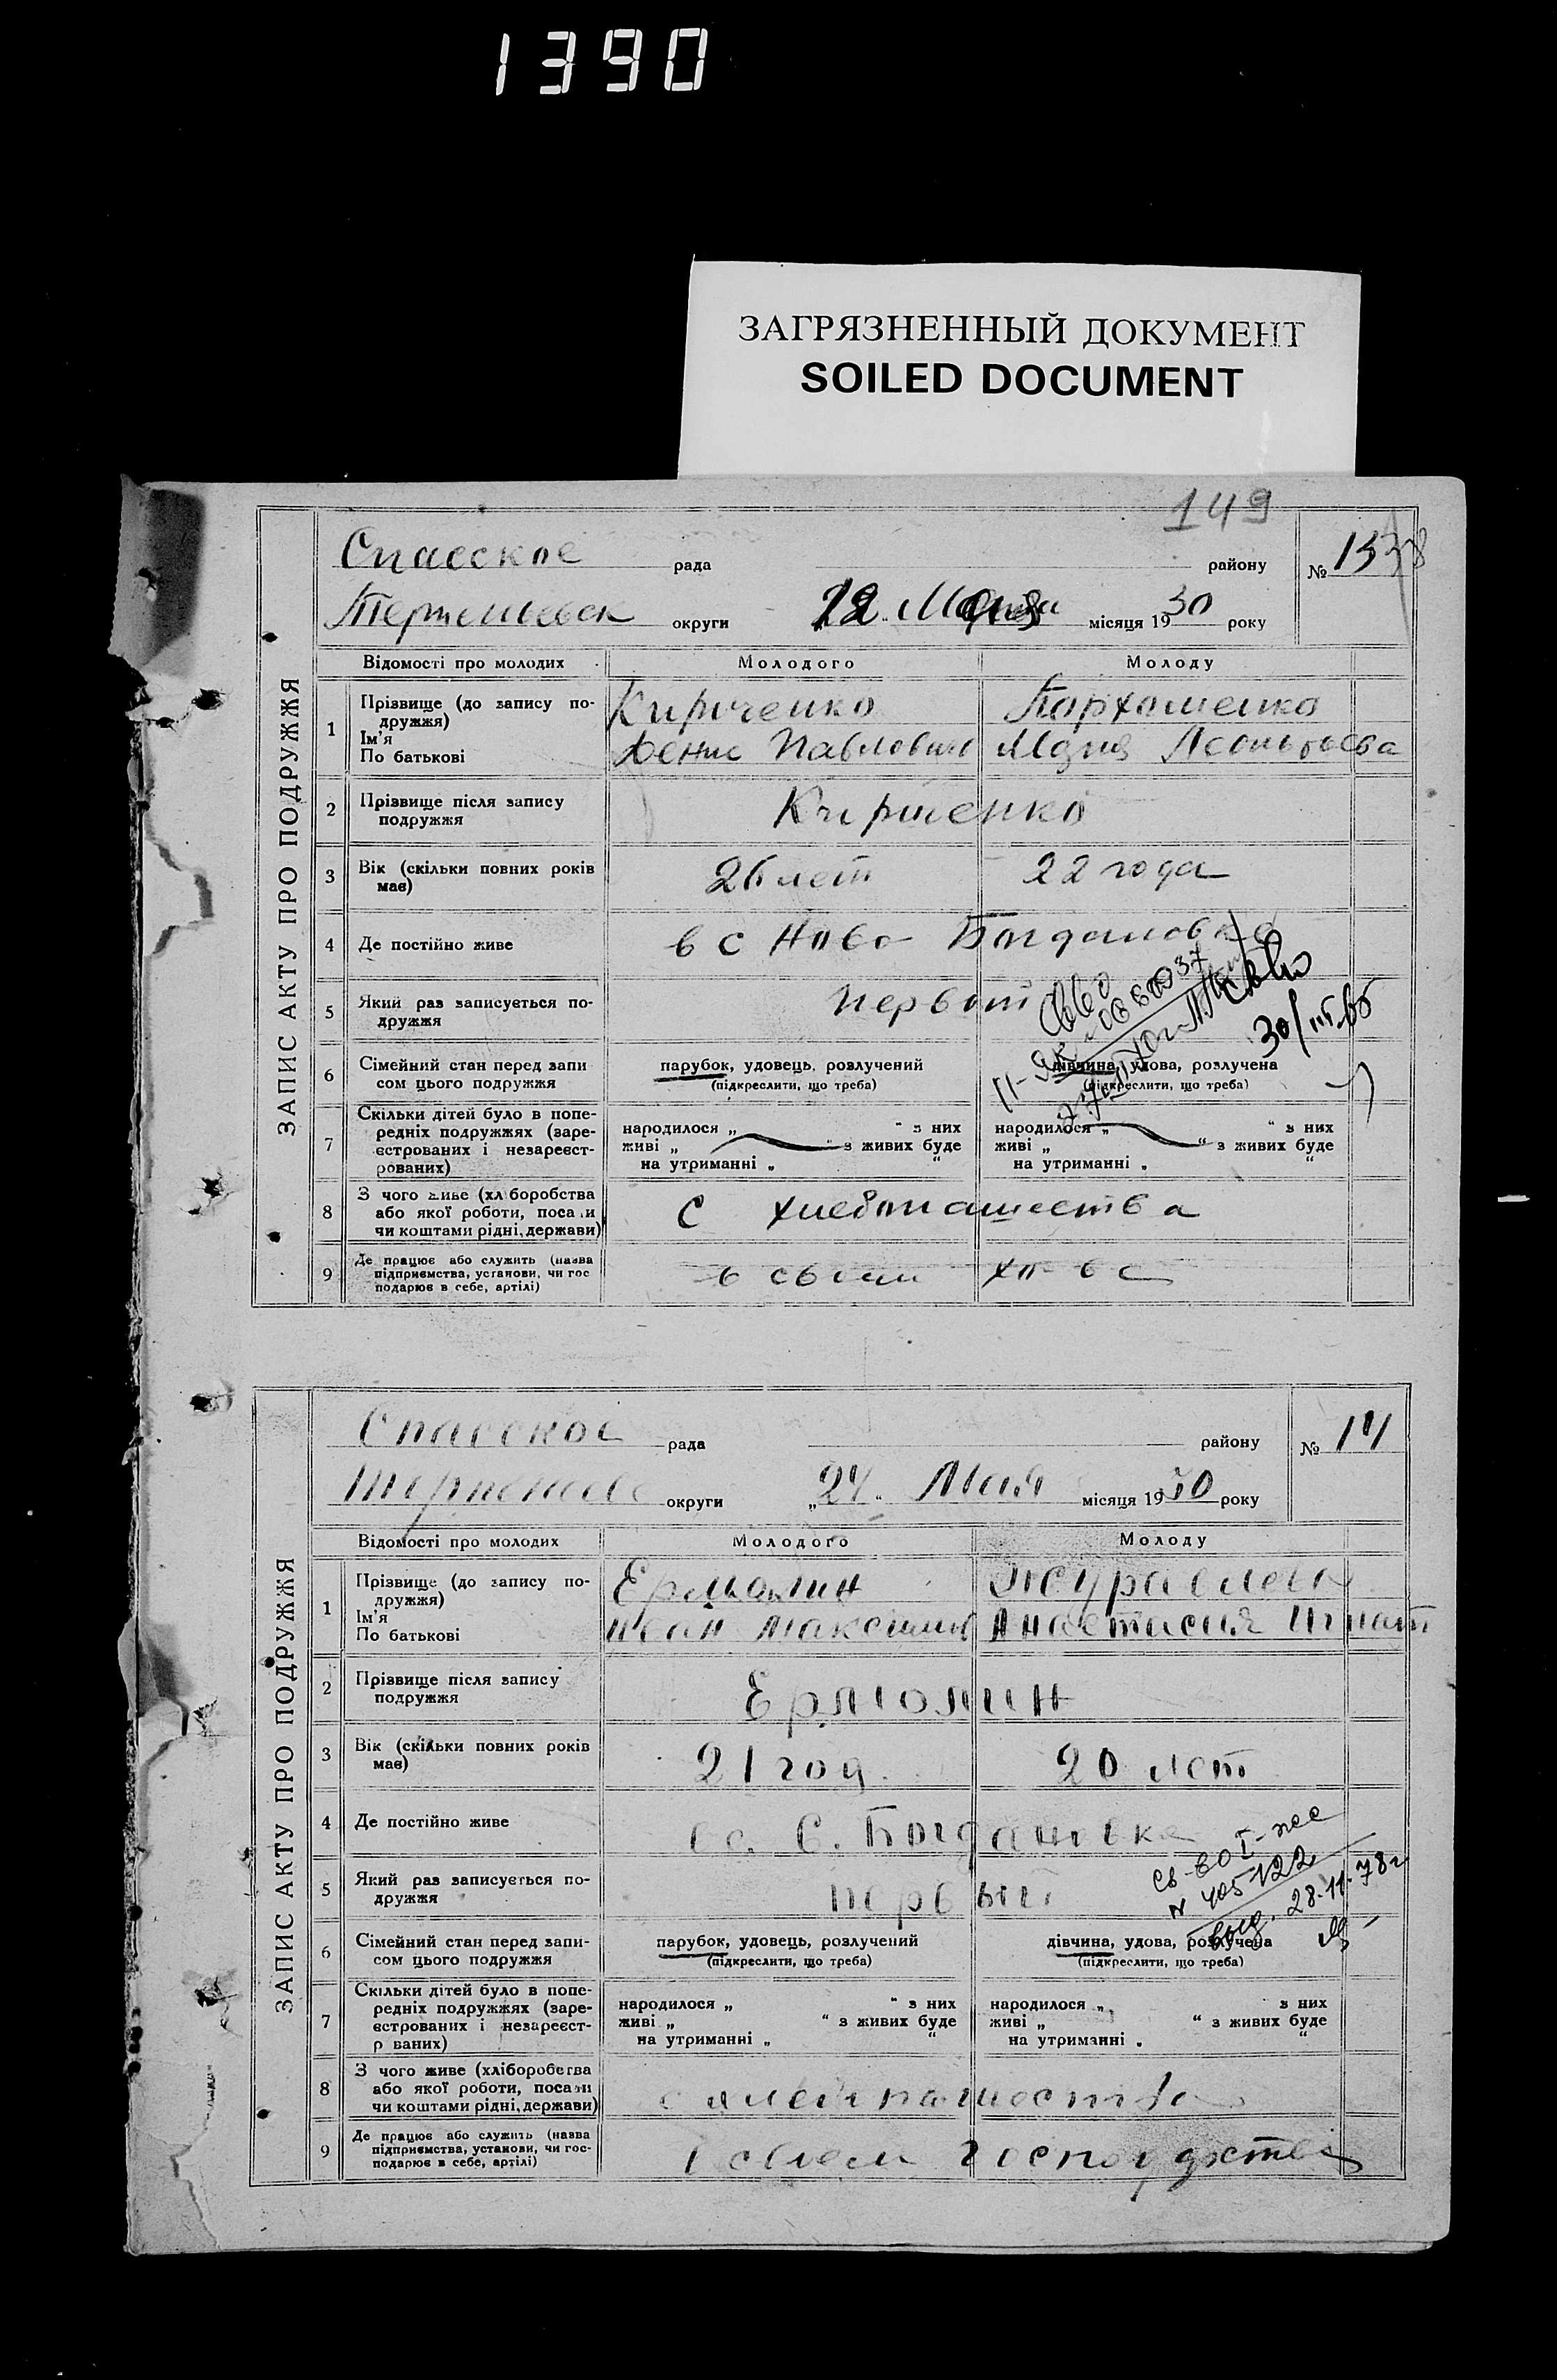 1390
ЗАГРЯЗНЕННЫЙ ДОКУМЕНТ
SOILED DOCUMENT
149
ЗАПИС АКТУ ПРО ПОДРУЖЖЯ
Спасское рада району №
округи місяця 1930 року
Відомості про молодих Молодого Молоду
1 Прізвище (до запису по-
дружжя)
Ім'я
По батькові
Кириченко Пархоменко
Денис Павлович Мария Леонтьева
2 Прізвище після запису
подружжя
Кириченко
3 Вік (скільки повних років
має)
26 лет 22 года
4 Де постійно живе в с Ново Богдановка
5 Який раз записується по-
дружжя
первый
6 Сімейний стан перед запи
сом цього подружжя
парубок, удовець, розлучений дівчина, удова, розлучена
(підкреслити, що треба) (підкреслити, що треба)
7 Скільки дітей було в попе-
редніх подружжях (заре-
єстрованих і незареєст-
рованих)
народилося „ “ з них народилося „ “ з них
живі „ “ з живих буде живі „ “ з живих буде
на утриманні „ “ на утриманні „ “
8 З чого живе (хліборобства
або якої роботи, посади
чи коштами рідні, держави)
С хлебопашества
9 Де працює або служить (назва
підприємства, установи, чи гос
подарює в себе, артілі)
в своем хо-ве
ЗАПИС АКТУ ПРО ПОДРУЖЖЯ
Спасское рада району № 14
округи „24“ Мая місяця 1930 року
Відомості про молодих Молодого Молоду
1 Прізвище (до запису по-
дружжя)
Ім'я
По батькові
Ермолин
Иван Максимов Анастасия Игнат
2 Прізвище після запису
подружжя
Ермолин
3 Вік (скільки повних років
має)
21 год 20 лет
4 Де постійно живе в с. С. Богдановка
5 Який раз записується по-
дружжя
первый
св-во I-ж
N 405122
выд. 28.11.78г
6 Сімейний стан перед запи-
сом цього подружжя
парубок, удовець, розлучений дівчина, удова, розлучена
(підкреслити, що треба) (підкреслити, що треба)
7 Скільки дітей було в попе-
редніх подружжях (заре-
єстрованих і незареєст-
р ваних)
народилося „ “ з них народилося „ з них
живі „ “ з живих буде живі „ “ з живих буде
на утриманні „ “ на утриманні „ “
8 З чого живе (хліборобства
або якої роботи, посади
чи коштами рідні, держави)
с хлебопашества
9 Де працює або служить (назва
підприємства, установи, чи гос-
подарює в себе, артілі)
в своем